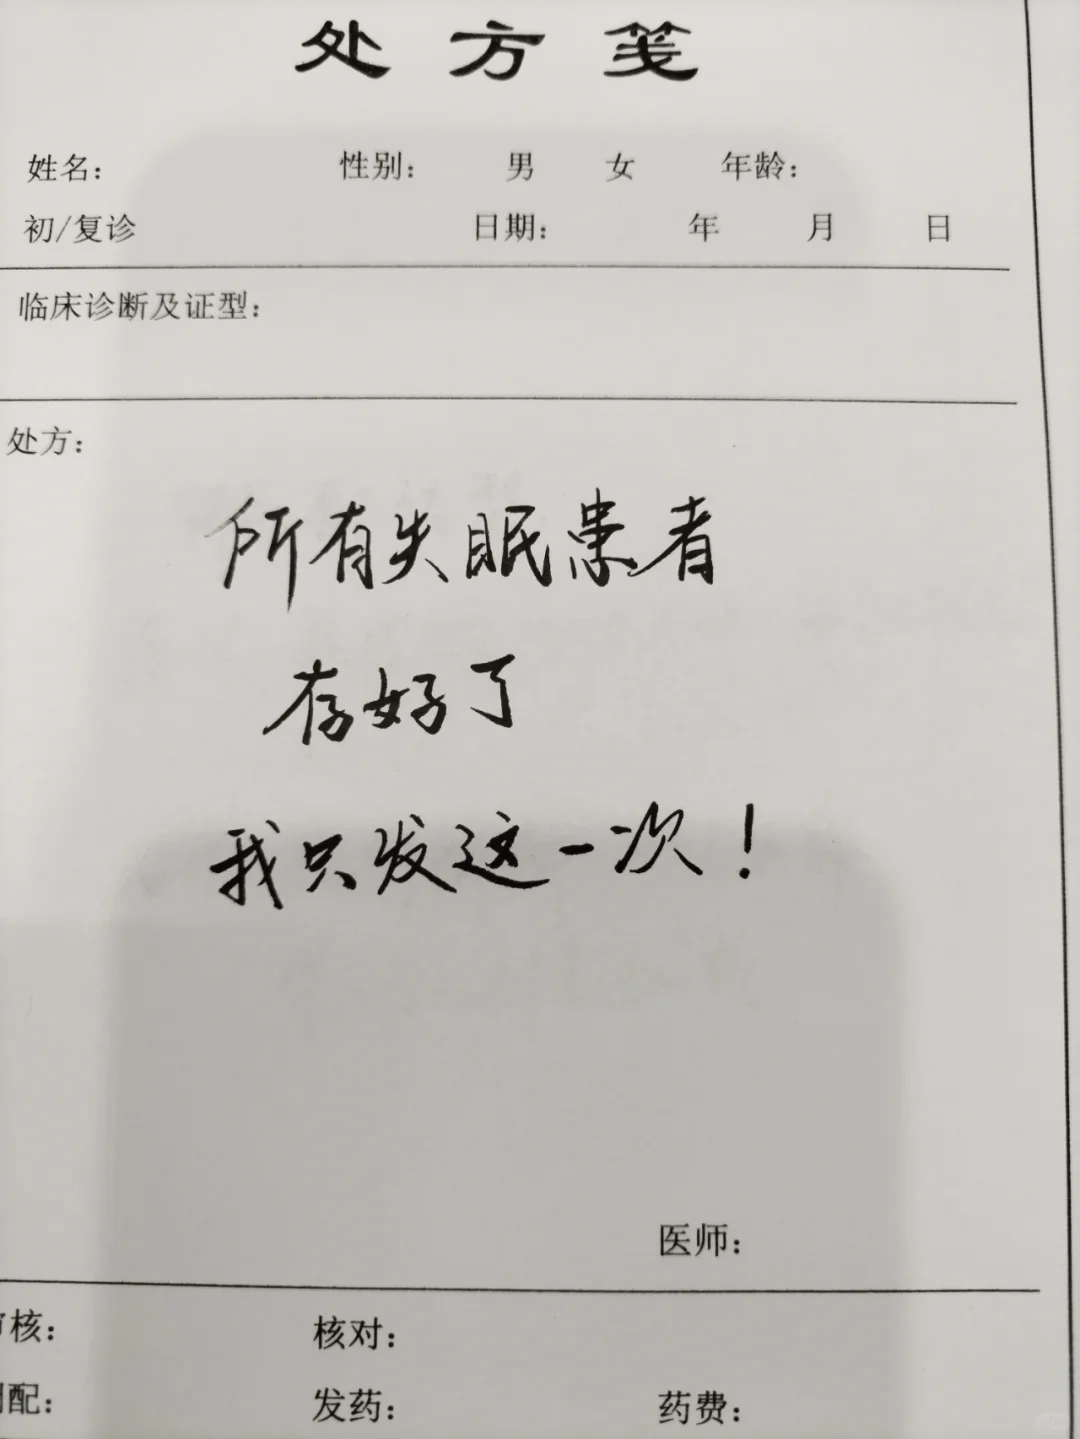 处方笺
姓名： 性别： 男 女 年龄：
初/复诊 日期： 年 月 日
临床诊断及证型：
处方：
所有失眠患者
存好了
我只发这一次！
医师：
核： 核对：
配： 发药： 药费：